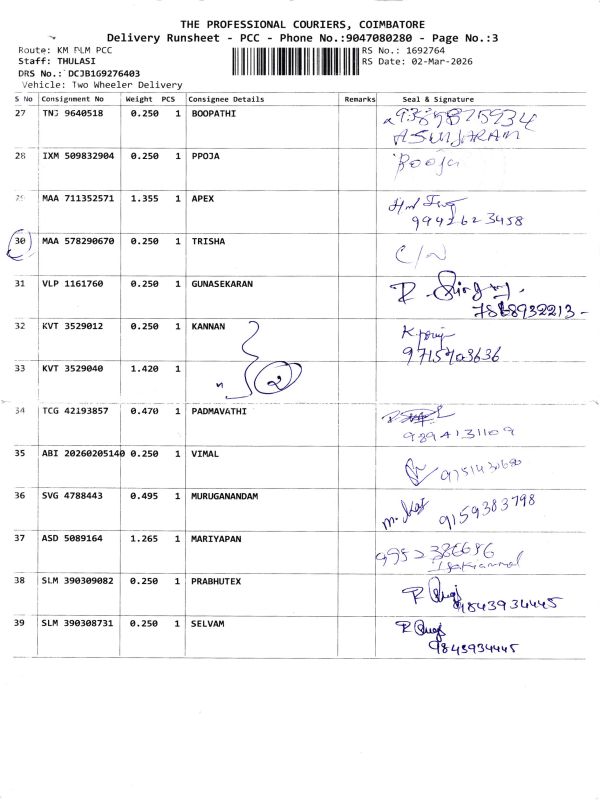 THE PROFESSIONAL COURIERS, COIMBATORE
Delivery Runsheet - PCC - Phone No.:9047080280 - Page No.:3
Route: KM PLM PCC
RS No.: 1692764
Staff: THULASI
RS Date: 02-Mar-2026
DRS No.: DCJB169276403
Vehicle: Two Wheeler Delivery
S No Consignment No Weight PCS Consignee Details Remarks Seal & Signature
27 TNJ 9640518 0.250 1 BOOPATHI
28 IXM 509832904 0.250 1 PPOJA Pooja
29 MAA 711352571 1.355 1 APEX
9942623458
30 MAA 578290670 0.250 1 TRISHA C/N
31 VLP 1161760 0.250 1 GUNASEKARAN
32 KVT 3529012 0.250 1 KANNAN
9715703636
33 KVT 3529040 1.420 1 " 2
34 TCG 42193857 0.470 1 PADMAVATHI
9894131109
35 ABI 20260205140 0.250 1 VIMAL
36 SVG 4788443 0.495 1 MURUGANANDAM 9159383798
37 ASD 5089164 1.265 1 MARIYAPAN
38 SLM 390309082 0.250 1 PRABHUTEX
9843934445
39 SLM 390308731 0.250 1 SELVAM
9843934445